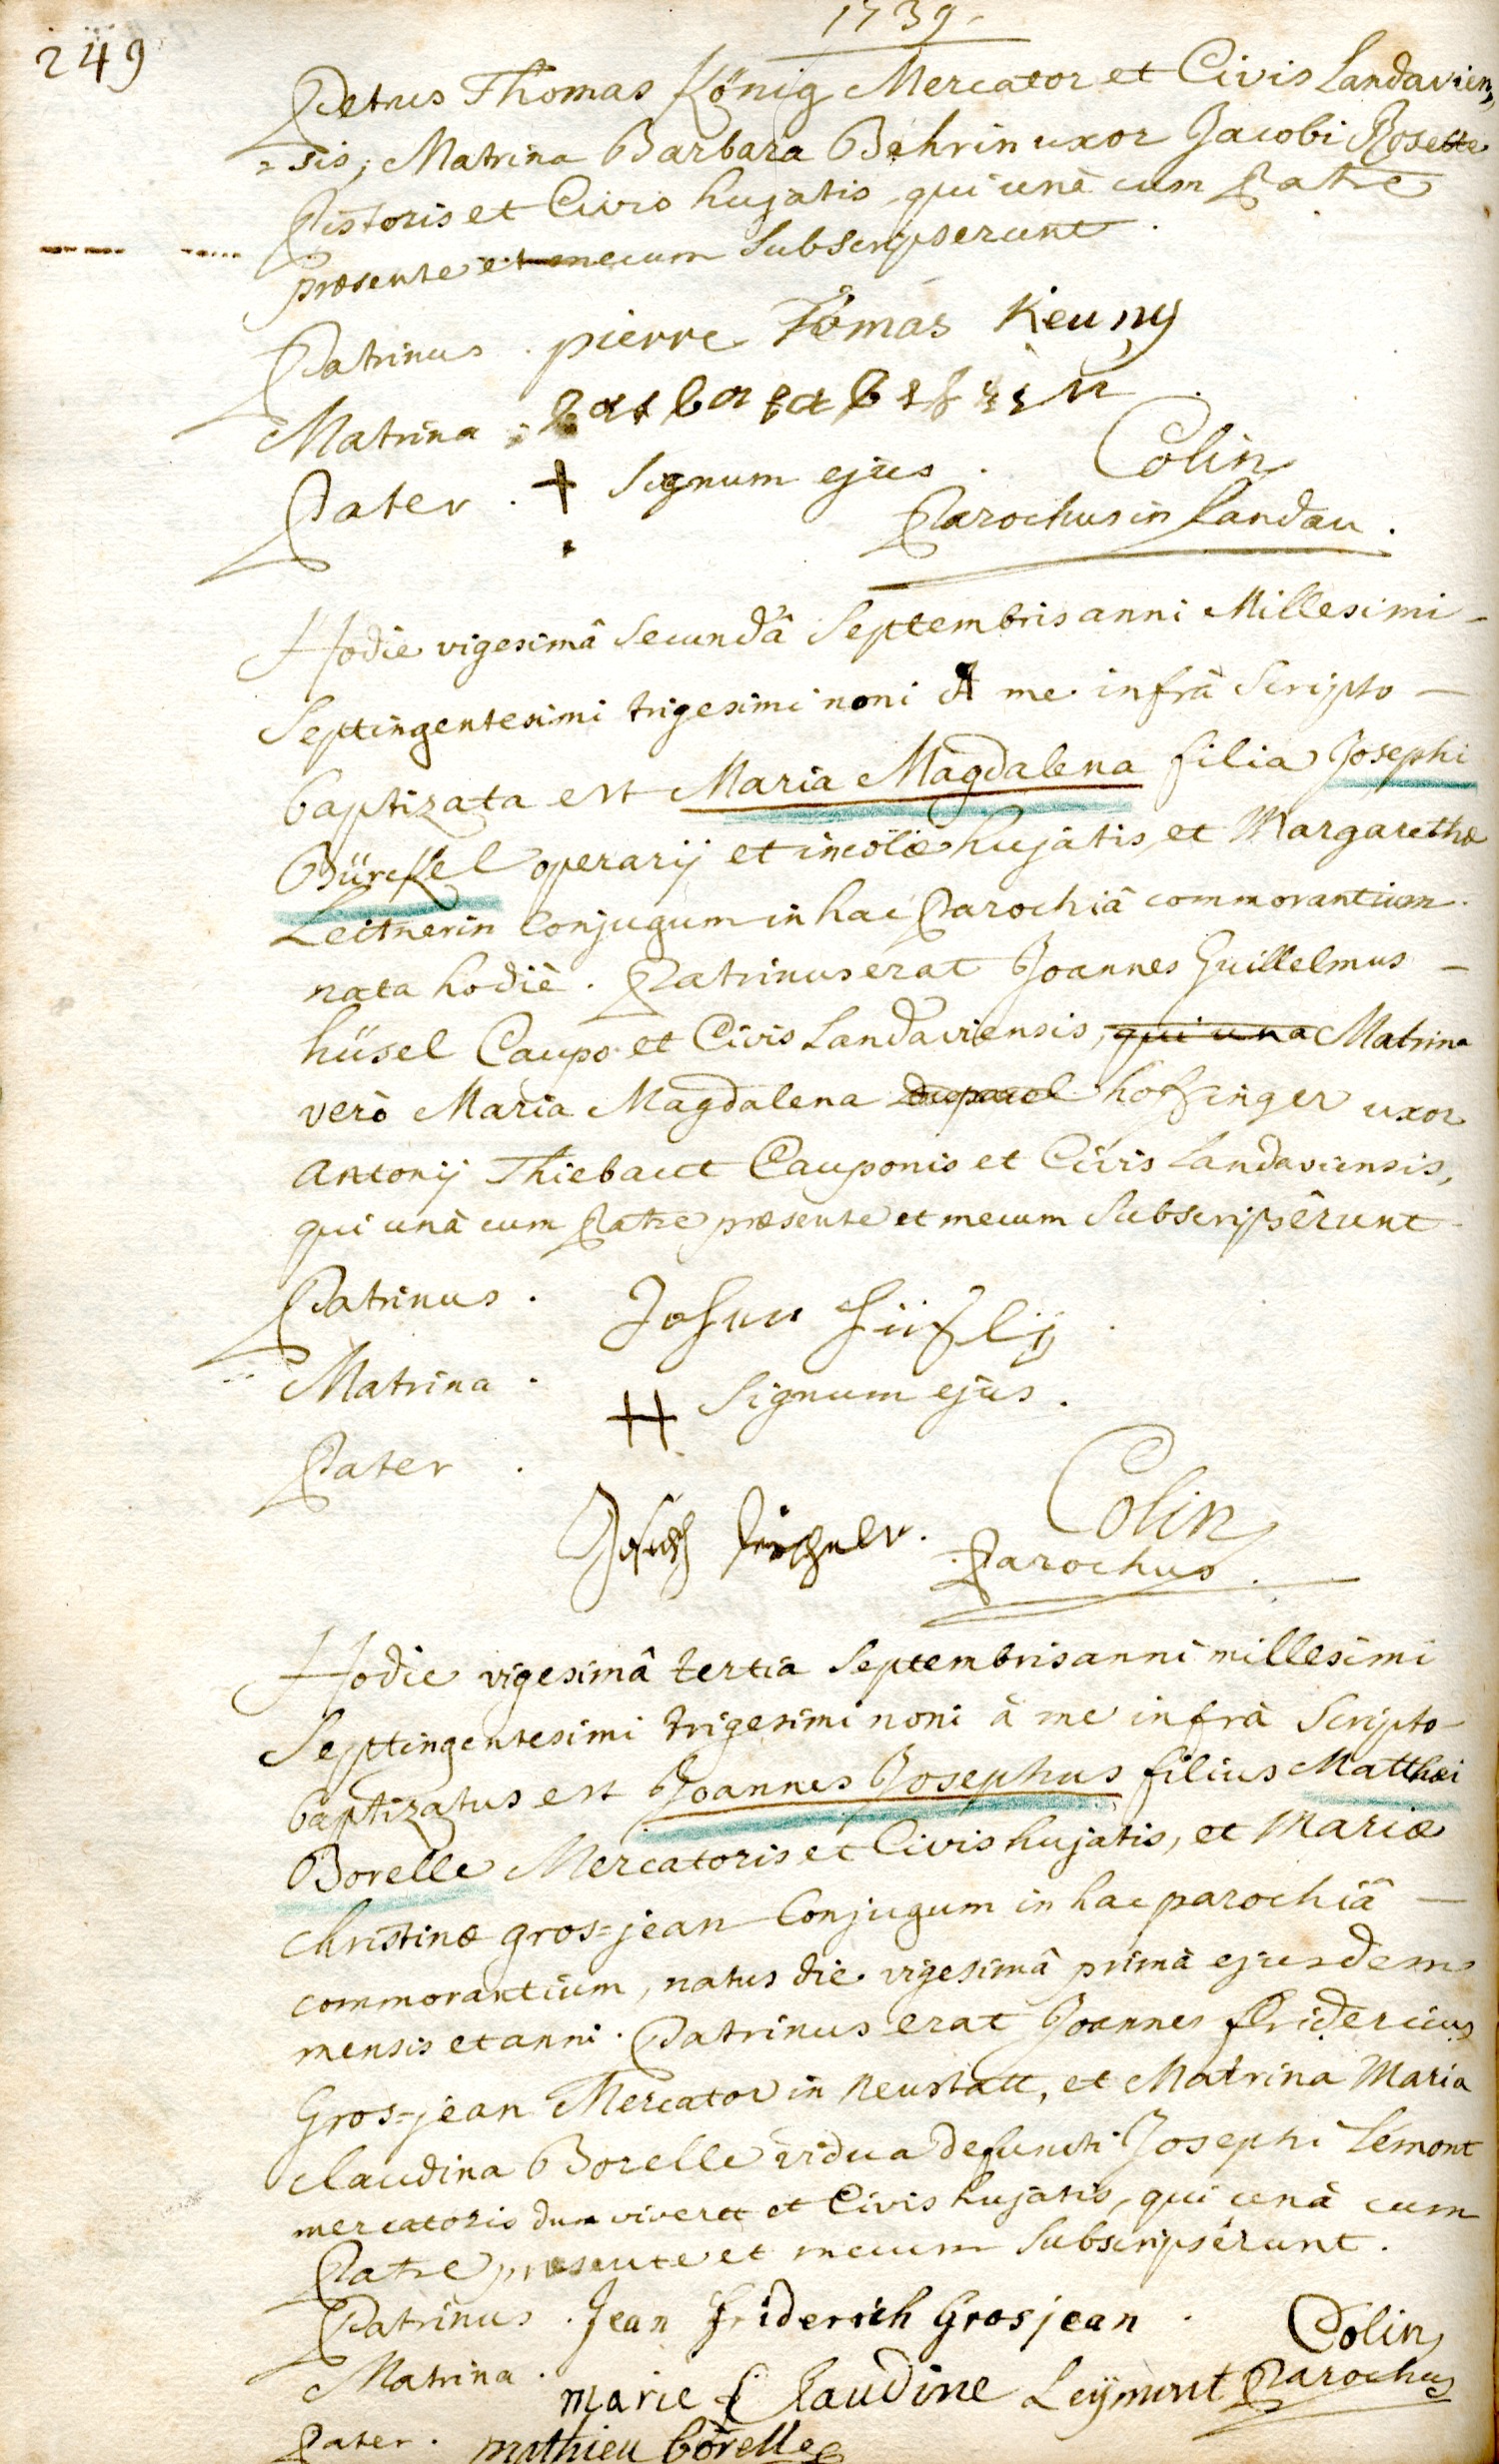 1739
249
Petrus Thomas König Mercator et Civis Landavien
=sis, Matrina Barbara Behrin uxor Jacobi Rosette
Pistoris et Civis hujatis, qui unà cum Patre
præsente et mecum Subscripserunt.
Patrinus. pierre Tomas Keuny
Matrina. barbara behrin
Pater. + Signum ejus. Colin
Parochus in Landau.
Hodie vigesimâ Secundâ Septembris anni Millesimi
Septingentesimi trigesimi noni A me infrà Scripto
baptizata est Maria Magdalena filia Josephi
Bürckel operarij et incolæ hujatis, et Margarethæ
Leitnerin Conjugum in hac Parochiâ commorantium.
nata hodiè. Patrinus erat Joannes Guillelmus
hüsel Caupo et Civis Landaviensis, qui una Matrina
verò Maria Magdalena hoffinger uxor
Antonij Thiebaut Cauponis et Civis Landaviensis,
qui unà cum Patre præsente et mecum Subscripsêrunt
Patrinus.
Matrina. ++ Signum ejus.
Pater. Colin
Parochus.
Hodie vigesimâ tertia Septembris anni millesimi
Septingentesimi trigesimi noni à me infrà Scripto
baptizatus est Joannes Josephus filius Matthæi
Borelle Mercatoris et Civis hujatis, et Mariæ
Christinæ gros=jean Conjugum in hac parochiâ
commorantium, natus die vigesimâ primà ejusdem
mensis et anni. Patrinus erat Joannes fridericus
Gros=jean Mercator in Neustatt, et Matrina Maria
Claudina Borelle vidua defuncti Josephi Lémont
mercatoris dum viveret et Civis hujatis, qui unà cum
Patre præsente et mecum Subscripsêrunt.
Patrinus. Jean Friderich Grosjean. Colin
Matrina. marie Claudine Leymont Parochus
Pater. mathieu borelle